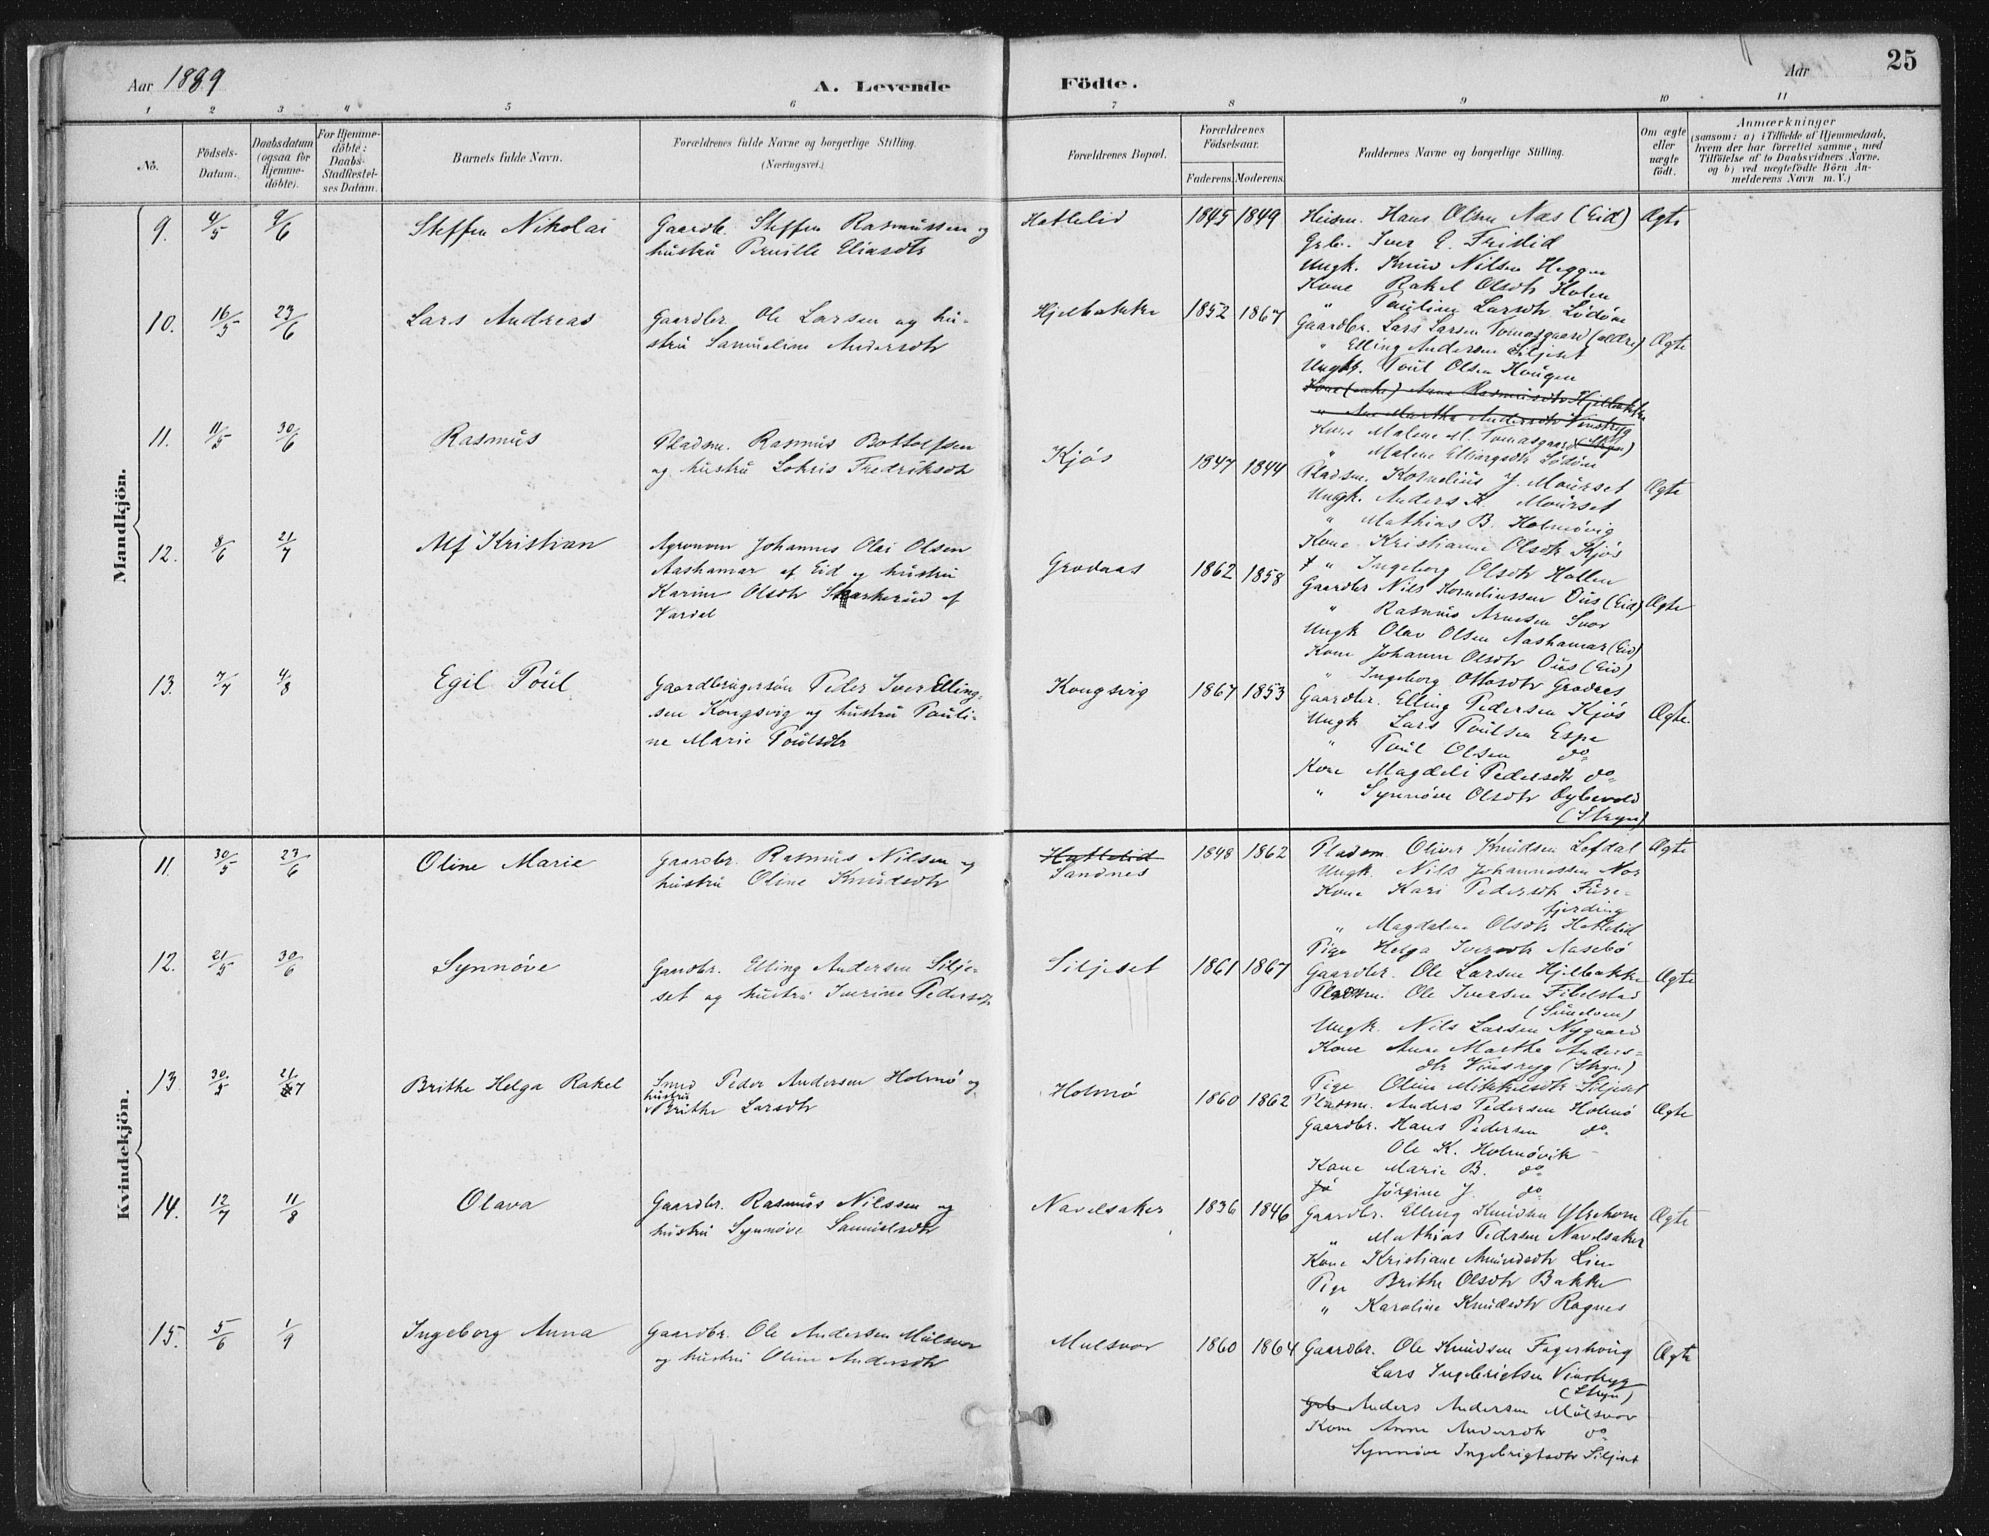 Aar 1889
A. Levende Födte.
Aar
25
1 2 3 4 5 6 7 8 9 10 11
No.
Födsels-Datum.
Daabsdatum (ogsaa for Hjemme-döbte).
For Hjemme-döbte: Daabs-Stadfæstel-ses Datum.
Barnets fulde Navn.
Forældrenes fulde Navne og borgerlige Stilling. (Næringsvei.)
Forældrenes Bopæl.
Forældrenes Födselsaar.
Faderens. Moderens.
Faddernes Navne og borgerlige Stilling.
Om ægte eller uægte födt.
Anmærkninger
(saasom: a) i Tilfælde af Hjemmedaab,
hvem der har forrettet samme, med
Tilföielse af to Daabsvidners Navne.
og b) ved uægtefödte Börn An-
melderens Navn m. V.)
Mandkjön.
9. 4/5 9/6 Steffen Nikolai
Gaardb. Steffen Rasmussen og
hustru Pernille Eliasdtr
Hattelid 1845 1849
Hans Olsen Næs (Eid) Ægte
Iver E. Fristid
Ungk. Knud Nilsen Heggen
Kone Rakel Olsdtr Holen
" Pauline Larsdtr Lödöen
10. 16/5 23/6 Lars Andreas
Gaardbr. Ole Larsen og hu-
stru Samueline Andersdtr
Hjelbakke 1852 1867
Gaardbr. Lars Larsen Tomasgaard (ældre) Ægte
" Elling Andersen Siljeset
Ungk. Poul Olsen Haugen
Kone (enke) Anne Rasmusdtr Hjelbakke
" Ane Marthe Andersdtr Vinsryg
Kone Malene M. Tomasgaard (Stryn)
" Malene Ellingsdtr Lödöen
11. 11/5 30/6 Rasmus
Pladsm. Rasmus Bottolfsen
og hustru Lohris Fredriksdtr
Kjös 1847 1844
Pladsm. Kornelius J. Maurset Ægte
Ungk. Anders K. Maurset
" Mathias B. Holmövig
Kone Kristianne Olsdtr Kjös
" Ingeborg Olsdtr Hollen
12. 8/6 21/7 Alf Kristian
Agronom Johannes Olai Olsen
Aashamar af Eid og hustru
Karine Olsdtr Skarkerud af
Vardal
Grodaas 1862 1858
Gaardbr Nils Korneliussen Ous (Eid) Ægte
" Rasmus Arnesen Svor
Ungk Olav Olsen Aashamar (Eid)
Kone Johanne Olsdtr Ous (Eid)
" Ingeborg Ottosdtr Grodaas
13. 7/7 4/8 Egil Poul
Gaardbrugersön Peder Iver Elling-
sen Kongsvig og hustru Pauli-
ne Marie Poulsdtr
Kongsvig 1867 1853
Gaardbr. Elling Pedersen Kjös Ægte
Ungk. Lars Poulsen Espe
" Poul Olsen do
Kone Magdeli Pedersdtr do
" Synnöve Olsdtr
(Stryn)
Kvindekjön.
11. 30/5 23/6 Oline Marie
Gaardbr. Rasmus Nilsen og
hustru Oline Knudsdtr
Hattelid
Sandnes 1848 1862
Pladsm. Oliver Knudsen Lefdal Ægte
Ungk. Nils Johannessen Nor
Kone Kari Pedersdtr Fure-
fjerding
" Magdalene Olsdtr Hattelid
Pige Helga Iversdtr Aasebö
12. 21/5 30/6 Synnöve
Gaardbr. Elling Andersen Silje-
set og hustru Iverine Pedersdtr
Siljeset 1861 1867
Gaardbr. Ole Larsen Hjelbakke Ægte
Pladsm. Ole Iversen Fibelstad
Ungk. Nils Larsen Nygaard
Kone Anne Marthe Anders-
dtr Vinsryg (Stryn)
Pige Oline Mikkelsdtr Siljeset
13. 30/5 21/7 Brithe Helga Rakel
Smed Peder Andersen Holmö og
hustru
Brithe Larsdtr
Holmö 1860 1862
Pladsm. Anders Pedersen Holmö Ægte
Gaardbr. Hans Pedersen do
Ole K. Holmövik
Kone Marie B. do
Jörgine J. do
14. 12/7 11/8 Olava
Gaardbr. Rasmus Nilssen og
hustru Synnöve Samuelsdtr
Navelsaker 1836 1846
Gaardbr. Elling Knudsen Ytrehorn Ægte
" Mathias Pedersen Navelsaker
Kone Kristiane Amundsdtr Lien
Pige Brithe Olsdtr Bakke
" Karoline Knudsdtr Ragnes
15. 5/6 1/9 Ingeborg Anna
Gaardbr. Ole Andersen Mulsvor
og hustru Oline Andersdtr
Mulsvor 1860 1864
Gaardbr. Ole Knudsen Fagerhaug Ægte
Lars Ingebrigtsen Vinsryg
(Stryn)
Anders Andersen Mulsvor
Kone Anne Andersdtr do
Synnöve Ingebrigtsdtr Siljeset